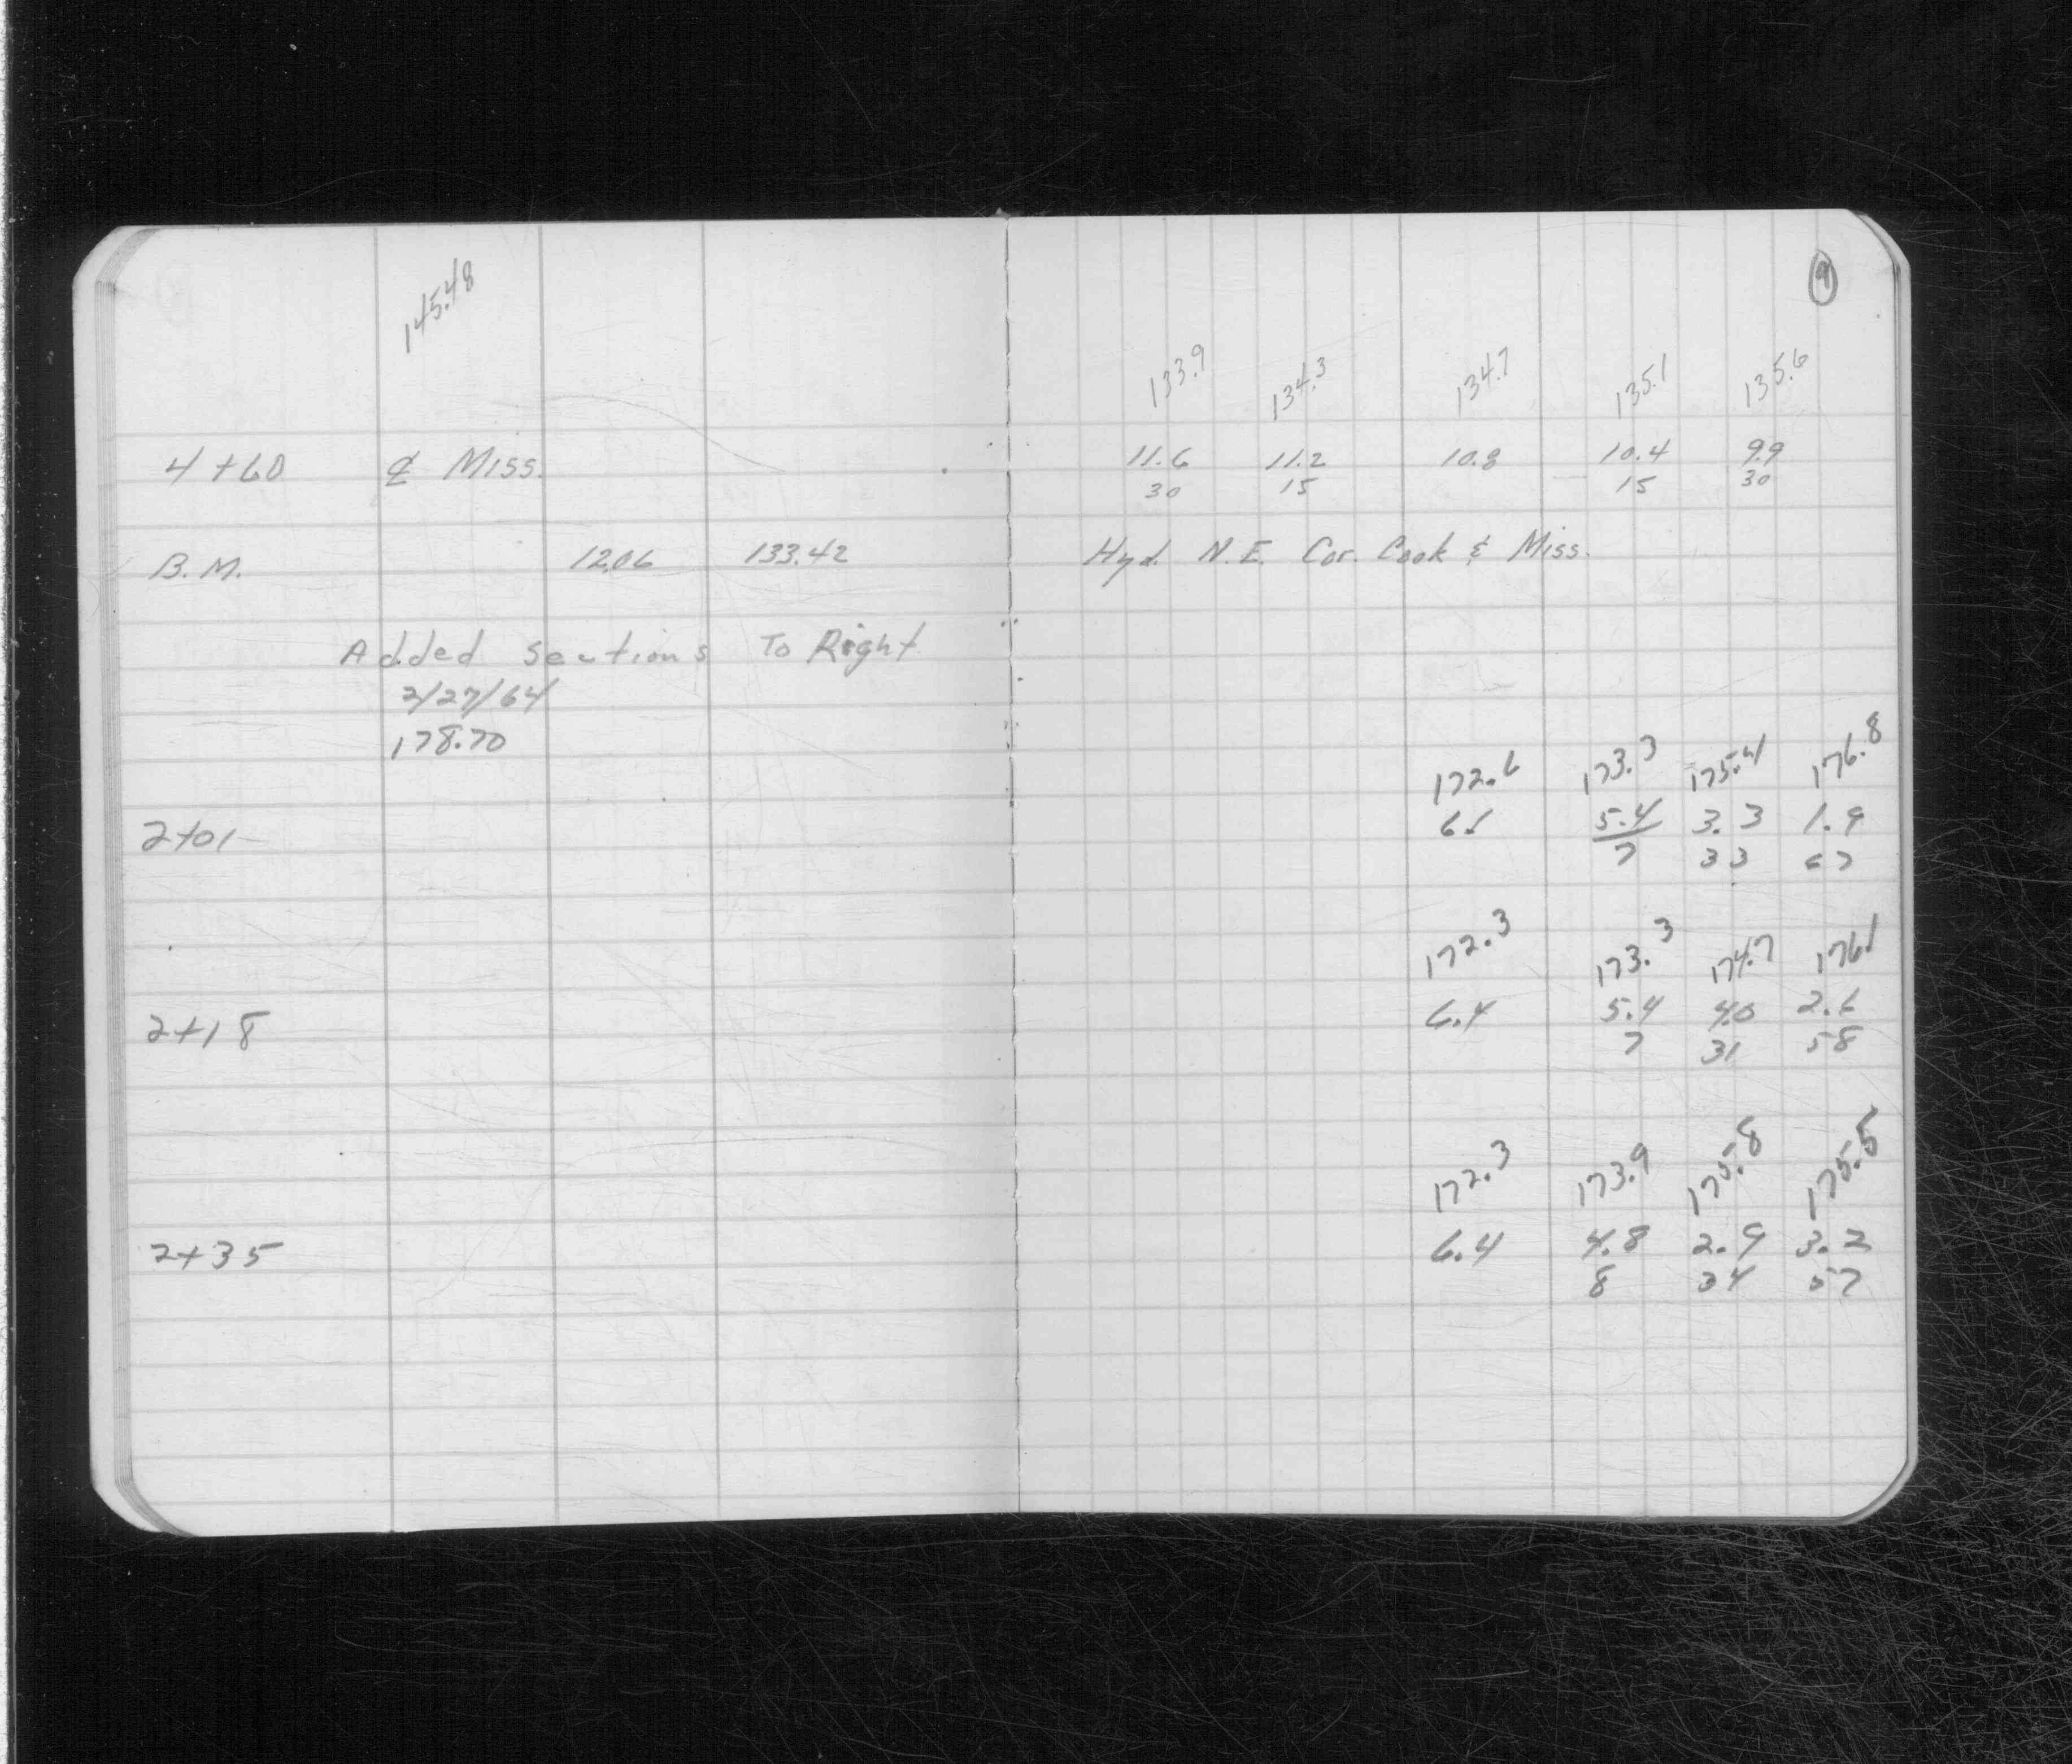 9
145.48
133.9 134.3 134.7 135.1 135.6
4+60 ℄ Miss. 11.6 11.2 10.8 10.4 9.9
30 15 15 30
B.M. 12.06 133.42 Hyd. N.E. Cor. Cook & Miss.
Added Sections To Right
2/27/64
178.70
172.6 173.3 175.4 176.8
2+01 6.1 5.4 3.3 1.9
7 33 57
172.3 173.3 174.7 176.1
2+18 6.4 5.4 4.0 2.6
7 31 58
172.3 173.9 175.8 175.5
2+35 6.4 4.8 2.9 3.2
8 34 57